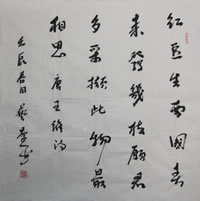 紅豆生南國春
来發幾枝願君
多采撷此物最
相思 唐王維詩
壬辰春日